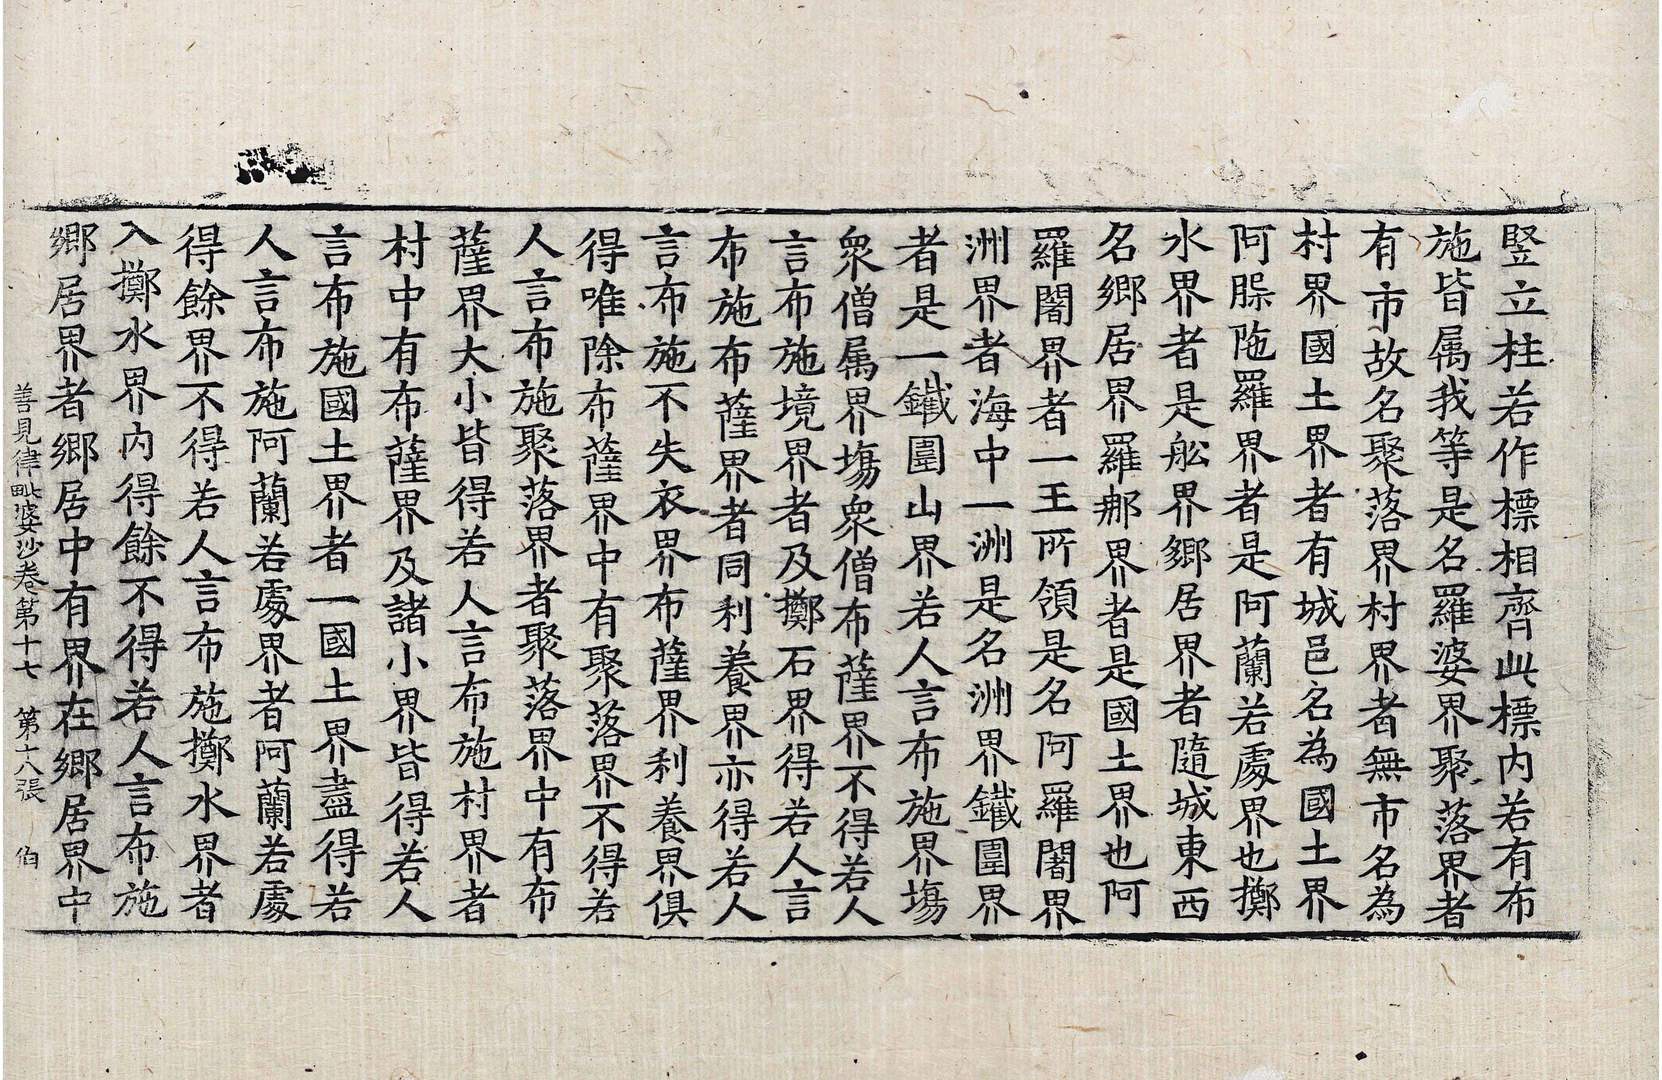 竪立柱若作標相齊此標内若有布
施皆属我等是名羅婆界聚落界者
有市故名聚落界村界者無市名為
村界國土界者有城邑名為國土界
阿䐧陁羅界者是阿蘭若處界也擲
水界者是舩界鄉居界者隨城東西
名鄉居界羅郍界者是國土界也阿
羅闍界者一王所領是名阿羅闍界
洲界者海中一洲是名洲界鐵圍界
者是一鐵圍山界若人言布施界塲
衆僧属界塲衆僧布薩界不得若人
言布施境界者及擲石界得若人言
布施布薩界者同利養界亦得若人
言布施不失衣界布薩界利養界俱
得唯除布薩界中有聚落界不得若
人言布施聚落界者聚落界中有布
薩界大小皆得若人言布施村界者
村中有布薩界及諸小界皆得若人
言布施國土界者一國土界盡得若
人言布施阿蘭若處界者阿蘭若處
得餘界不得若人言布施擲水界者
入擲水界内得餘不得若人言布施
鄉居界者鄉居中有界在鄉居界中
善見律毗婆沙卷第十七 第十八張 伯